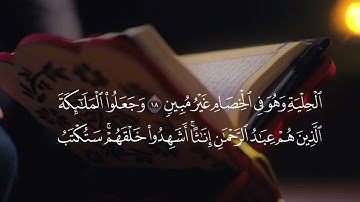 ٱلْحِلْيَةِ وَهُوَ فِى ٱلْخِصَامِ غَيْرُ مُبِينٍ ١٨ وَجَعَلُوا۟ ٱلْمَلَـٰٓئِكَةَ
ٱلَّذِينَ هُمْ عِبَـٰدُ ٱلرَّحْمَـٰنِ إِنَـٰثًا ۚ أَشَهِدُوا۟ خَلْقَهُمْ ۚ سَتُكْتَبُ